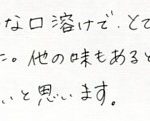 な口溶けで、とて
た。他の味もあると
いと思います。